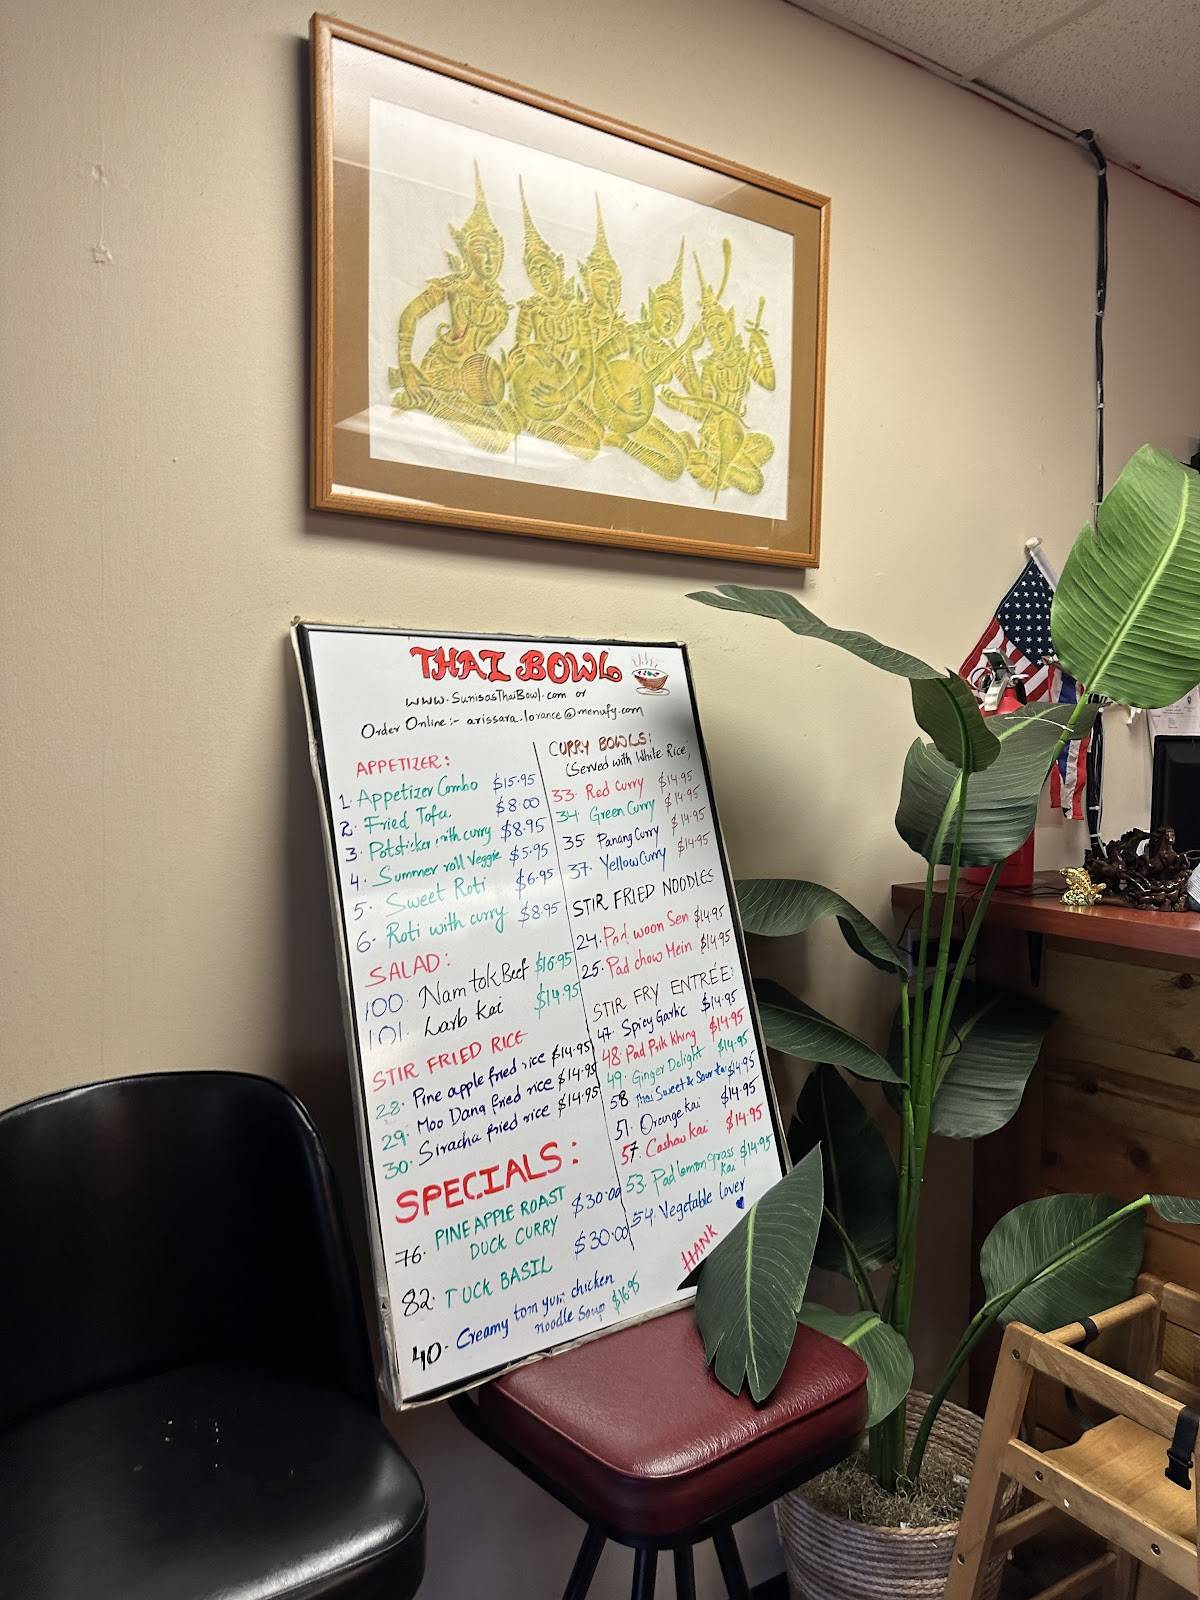 THAI BOWL
www.SunisasThaiBowl.com or
Order Online:- arissara.lorance@menufy.com
APPETIZER:
1. Appetizer Combo $15.95
2. Fried Tofu $8.00
3. Potsticker with curry $8.95
4. Summer roll Veggie $5.95
5. Sweet Roti $6.95
6. Roti with curry $8.95
SALAD:
100. Nam tok Beef $16.95
101. Larb Kai $14.95
STIR FRIED RICE
28. Pine apple fried rice $14.95
29. Moo Dang fried rice $14.95
30. Siracha fried rice $14.95
SPECIALS:
76. PINEAPPLE ROAST
DUCK CURRY $30.00
82. TUCK BASIL $30.00
40. Creamy tom yum chicken
noodle Soup $16.95
CURRY BOWLS:
(Served with White Rice)
33. Red Curry $14.95
34 Green Curry $14.95
35. Panang Curry $14.95
37. Yellow Curry $14.95
STIR FRIED NOODLES
24. Pad woon Sen $14.95
25. Pad chow Mein $14.95
STIR FRY ENTRÉE:
47. Spicy Garlic $14.95
48. Pad Prik Khing $14.95
49. Ginger Delight $14.95
58 Thai Sweet & Sour Kai $14.95
51. Orange Kai $14.95
57. Cashew Kai $14.95
53. Pad lemon grass
Kai $14.95
54. Vegetable lover
HANK